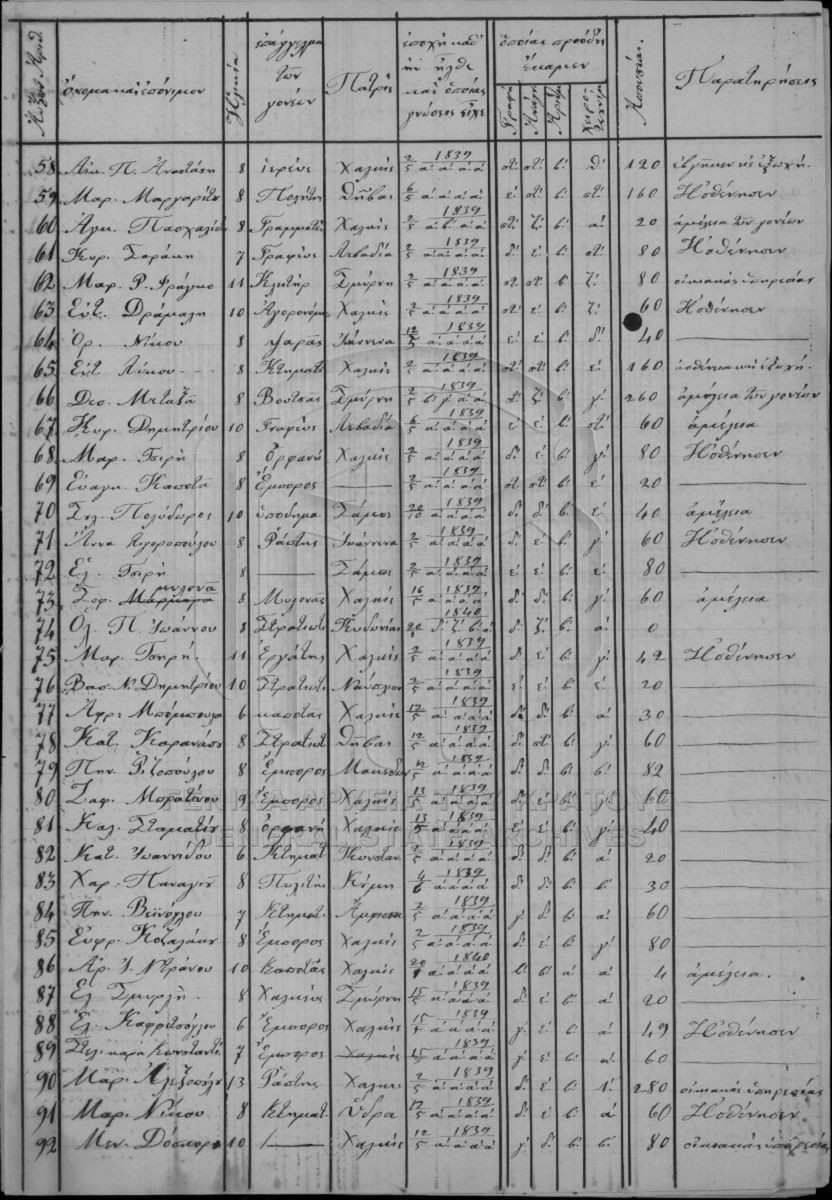 Αὔξων Ἀριθ. | ὄνομα καὶ ἐπόνιμον | Ἡλικία | ἐπάγγελμα τῶν γονέων | Πατρὶς | ἐποχὴ καθ' ἣν ἦλθε καὶ ὁποίας γνώσεις εἶχε | ὁποίας προόδους ἔκαμεν | Ἀπουσίαι. | Παρατηρήσεις
Γραφὴ | Ἀνάγ | Ἀριθμ | Χειρο-τεχνημ
58 Αἰκ. Π. Ἀναστάση 8 ἱερέως Χαλκὶς 2/5 1839 α' α' α' α' στ' στ' β' θ' 120 ἐβγῆκεν εἰς ἐξωχὴ.
59 Μαρ. Μαργαρίτη 8 Πολίτης Θῆβαι 6/5 α' α' α' α' ε' στ' β' στ' 160 Ἠσθένησεν
60 Ἁγν. Πασχαλίδη 8 Γραμματεὺς Χαλκὶς 2/5 1839 α' β' α' α' στ' ζ' β' α' 20 ἀμέλεια τῶν γονέων
61 Κυρ. Σαράκη 7 Γραφέως Λεβαδία 2/5 1839 α' α' α' α' δ' ε' β' στ' 80 Ἠσθένησεν
62 Μαρ. Ρ. Φράγκο 11 Κλητὴρ Σμύρνη 2/5 1839 α' α' α' α' στ' στ' β' ζ' 80 οἰκιακὰς ὑπηρεσίας
63 Εὐτ. Δράμαλη 10 Ἀγορονόμος Χαλκὶς 2/5 1839 α' α' α' α' στ' ε' β' ζ' 60 Ἠσθένησεν
64 Ὀρ. Νίκου 8 ψαρᾶς Ἰωάννενα 12/5 1839 α' α' α' α' ε' ε' β' δ' 40 —
65 Εὐτ. Λύκου 8 Κτηματί Χαλκὶς 2/5 1839 α' α' α' α' στ' στ' β' ε' 160 ἀσθένεια καὶ ἐξοχή.
66 Δεσ. Μεταξᾶ 8 Βουτσᾶς Σμύρνη 2/5 1839 β' γ' α' α' στ' ζ' β' γ' 260 ἀμέλεια τῶν γονέων
67 Κυρ. Δημητρίου 10 Γναφέως Λεβαδία 6/5 1839 α' α' α' α' ε' ε' β' στ' 60 ἀμέλεια
68 Μαρ. Τσιρῆ 8 Ὀρφανὴ Χαλκὶς 2/5 1839 α' α' α' α' δ' ε' β' γ' 80 Ἠσθένησεν
69 Εὐαγγ. Καπστᾶ 8 Ἔμπορος — 2/5 1839 α' α' α' α' στ' στ' β' ε' 20 —
70 Στλ. Πολύδωρος 10 ὑποδημα Σάμος 20/10 1839 α' α' α' α' δ' δ' β' ε' 40 ἀμέλεια
71 Ἄννα Ἀγοροπούλου 8 Ράπτης Ἰωάννενα 2/5 1839 α' α' α' α' δ' ε' β' γ' 60 Ἠσθένησεν
72 Ἑλ. Τσιρῆ 8 — Σάμος 2/5 1839 α' α' α' α' ε' ε' β' ε' 80 —
73 Σοφ. μυλονᾶ 8 Μυλονας Χαλκὶς 16/5 1839 α' α' α' α' δ' δ' β' γ' 60 ἀμέλεια
74 Ὀλ. Π. Ἰωάννου 8 Στρατιωτ Κυδωνίαι 20/1 1840 δ' ζ' β' α' δ' ζ' β' α' 0
75 Μαρ. Τσηρῆ 11 Ἐργάτης Χαλκὶς 2/5 1839 α' α' α' α' δ' ε' β' γ' 42 Ἠσθένησεν
76 Βασ. Ν. Δημητρίου 10 Στρατιωτ Ναύπλιον 2/5 1839 α' α' α' α' ε' ε' β' ε' 20 —
77 Ἀφρ. Μπόμπουλα 6 καποτᾶς Χαλκὶς 12/5 1839 α' α' α' α' δ' δ' β' α' 30 —
78 Κατ. Καρανάσο 8 Στρατιωτ Θῆβαι 12/5 1839 α' α' α' α' δ' στ' β' γ' 60 —
79 Πην. Ριζοπούλου 8 Ἔμπορος Μακεδων 12/5 1839 α' α' α' α' δ' δ' β' β' 82 —
80 Σαφ. Μπρατίνου 9 Ἔμπορος Χαλκὶς 13/5 1839 α' α' α' α' δ' ε' β' γ' 60 —
81 Καλ. Σταματίου 8 ὀρφανὴ Χαλκὶς 13/5 1839 α' α' α' α' ε' ε' β' γ' 40 —
82 Κατ. Ἰωαννίδου 6 Κτηματ Κωνσταν. 2/5 1839 α' α' α' α' δ' δ' β' α' 20 —
83 Χαρ. Παναγιῆ 8 Πολίτης Κύμη 4/6 1839 α' α' α' α' δ' δ' β' β' 30 —
84 Πην. Βεϊνόγλου 7 Κτηματ. Ἄμφισσα 2/5 1839 α' α' α' α' γ' δ' β' α' 60 —
85 Εὐφρ. Κοζαλάκη 8 Ἔμπορος Χαλκὶς 2/5 1839 α' α' α' α' δ' ε' β' γ' 80 —
86 Ἀρ. Ἰ. Ντράνου 10 Καποτᾶς Χαλκὶς 20/1 1840 α' α' α' α' β' β' α' α' 4 ἀμέλεια.
87 Ἑλ Σμυρλῆ 8 Χαλκέως Σμύρνη 15/5 1839 α' α' α' α' δ' ε' β' α' 20 —
88 Ἑλ. Καφφετσόγλου 6 Ἔμπορος Χαλκὶς 15/5 1839 α' α' α' α' γ' ε' β' α' 49 Ἠσθένησεν
89 Στελ. καρὰ Κωνσταντῆ 7 Ἔμπορος Χαλκὶς 15/5 1839 α' α' α' α' γ' ε' β' α' 60 —
90 Μαρ. Ἀλεξοπούλ 13 Ράπτης Χαλκὶς 2/5 1839 α' α' α' α' δ' ε' β' 280 οἰκιακὰς ὑπηρεσίας
91 Μαρ. Νίκου 8 Κτηματ. Ὕδρα 12/5 1839 α' α' α' α' δ' ε' β' α' 60 Ἠσθένησεν
92 Μεν. Δόσκορη 10 — Χαλκὶς 12/5 1839 α' α' α' α' γ' δ' β' β' 80 οἰκιακὰς ὑπηρεσίας